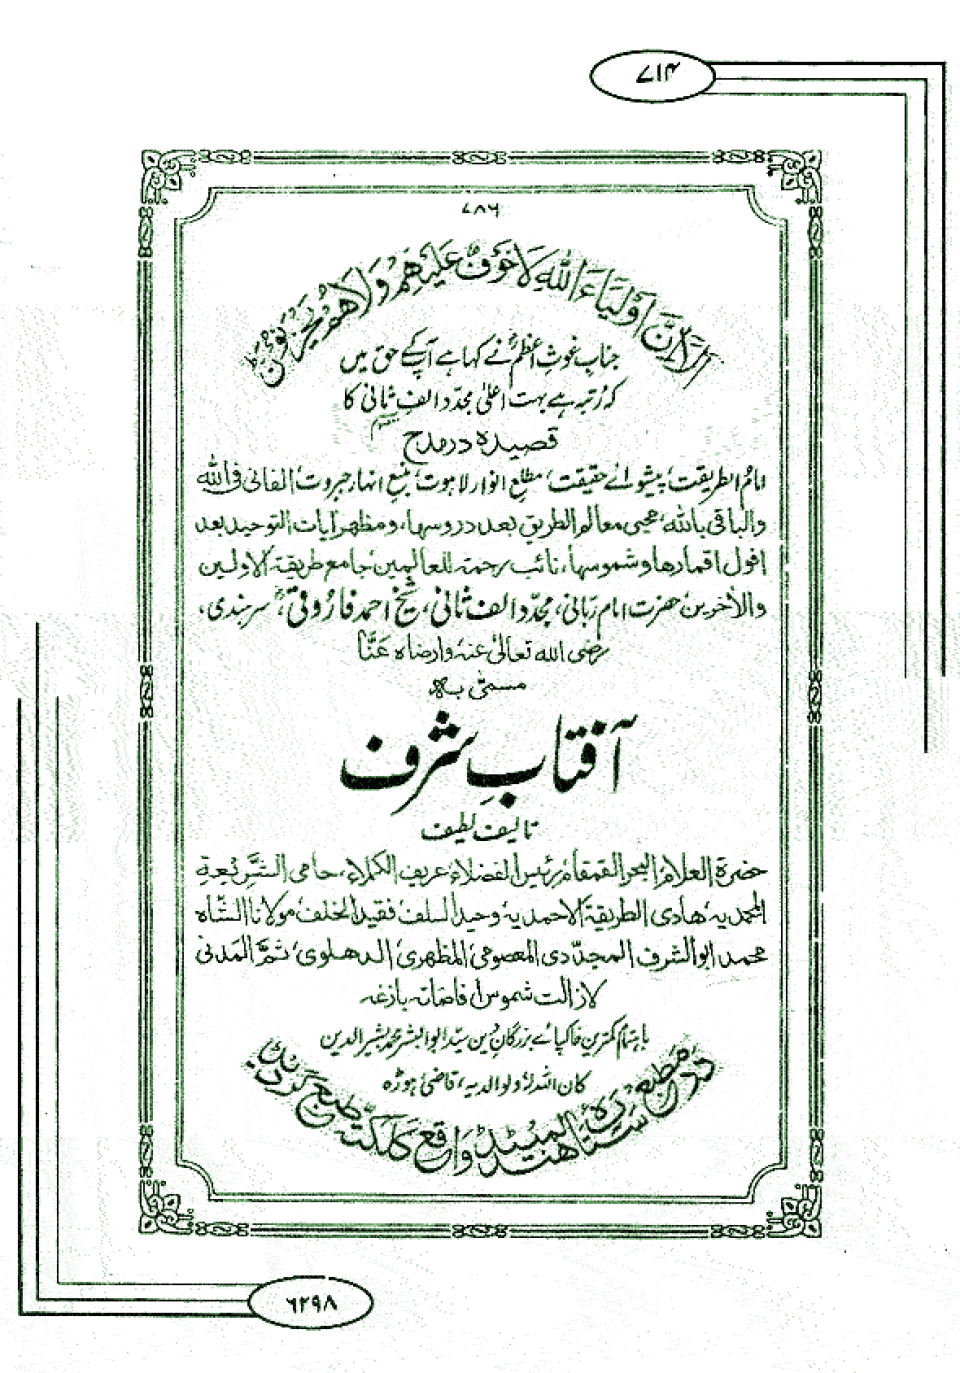 ۷۱۴
۷۸۶
الا ان اولیاء الله لا خوف علیهم ولا هم یحزنون
جناب غوثِ اعظمؓ نے کہا ہے آپ کے حق میں
کہ رُتبہ ہے بہت اعلیٰ مجدّد الفِ ثانی کا
قصیدہ در مدح
امام الطریقت، پیشوائے حقیقت، مطلع انوار لاہوت، منبع انہار جبروت، الفانی فی اللہ
والباقی باللہ، محیی معالم الطریق بعد دروسہا، ومظہر آیات التوحید بعد
افول اقمارہا وشموسہا، نائب رحمۃ للعالمین جامع طریقۃ الاولین
والآخرین، حضرت امام ربّانی، مجدّد الف ثانی، شیخ احمد فاروقی، سرہندی،
رضی اللہ تعالیٰ عنہ وارضاہ عَنَّا
مسمیٰ بہ
آفتابِ شرف
تالیف لطیف
حضرۃ العلام، البحر القمقام، رئیس الفضلاء، عریف الکملاء، حامی الشریعۃ
المحمدیہ، ہادی الطریقۃ الاحمدیہ، وحید السلف، فقید الخلف، مولانا الشاہ
محمد ابو الشرف المجدّدی المعصومی، المظہری، الدہلوی، ثم المدنی
لازالت شموس افاضاتہ بازغہ
باہتمام کمترین خاکپائے بزرگان دین سیّد ابو البشر محمد بشیر الدین
کان اللہ لہٗ ولوالدیہ، قاضیٔ ہوڑہ
در مطبع ستارہ ہند لمیٹڈ واقع کلکتہ طبع گردید
۶۲۹۸